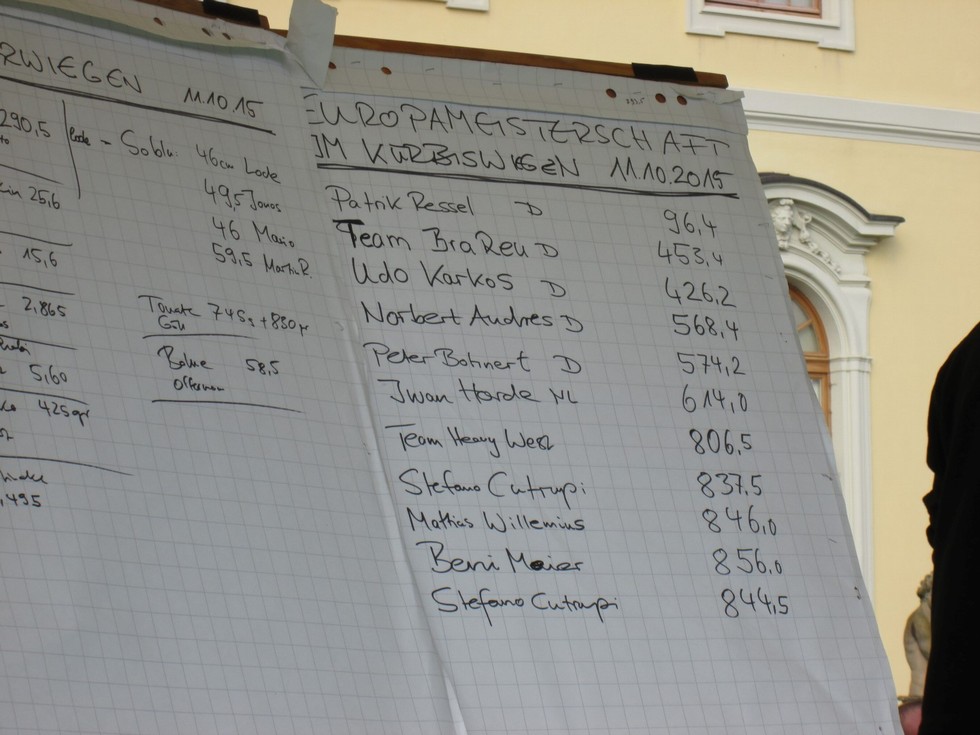 RWIEGEN 11.10.15
290,5
Sobl. 46cm Lode
25,6
49,5 Jonas
15,6
46 Mario
59,5 Martin R.
2,865
Tomate 745g + 880gr
5,60
Bohne 58,5
425gr
,495
EUROPAMEISTERSCHAFT
IM KÜRBISWIEGEN 11.10.2015
Patrik Ressel D 96,4
Team BraReu D 453,4
Udo Karkos D 426,2
Norbert Andres D 568,4
Peter Bohnert D 574,2
Jwan Horde NL 614,0
Team Heavy West 806,5
Stefano Cutrupi 837,5
Mathias Willemius 846,0
Beni Meier 856,0
Stefano Cutrupi 844,5